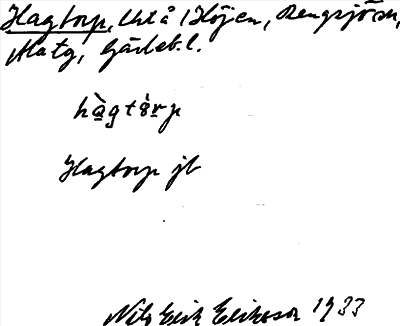 Hagtorp, Utå i Höjen, Rengsjö sn,
Alatg, Gävleb. l.
hàgtȯrp
Hagtorp jb
Nils Erik Eriksson 1933